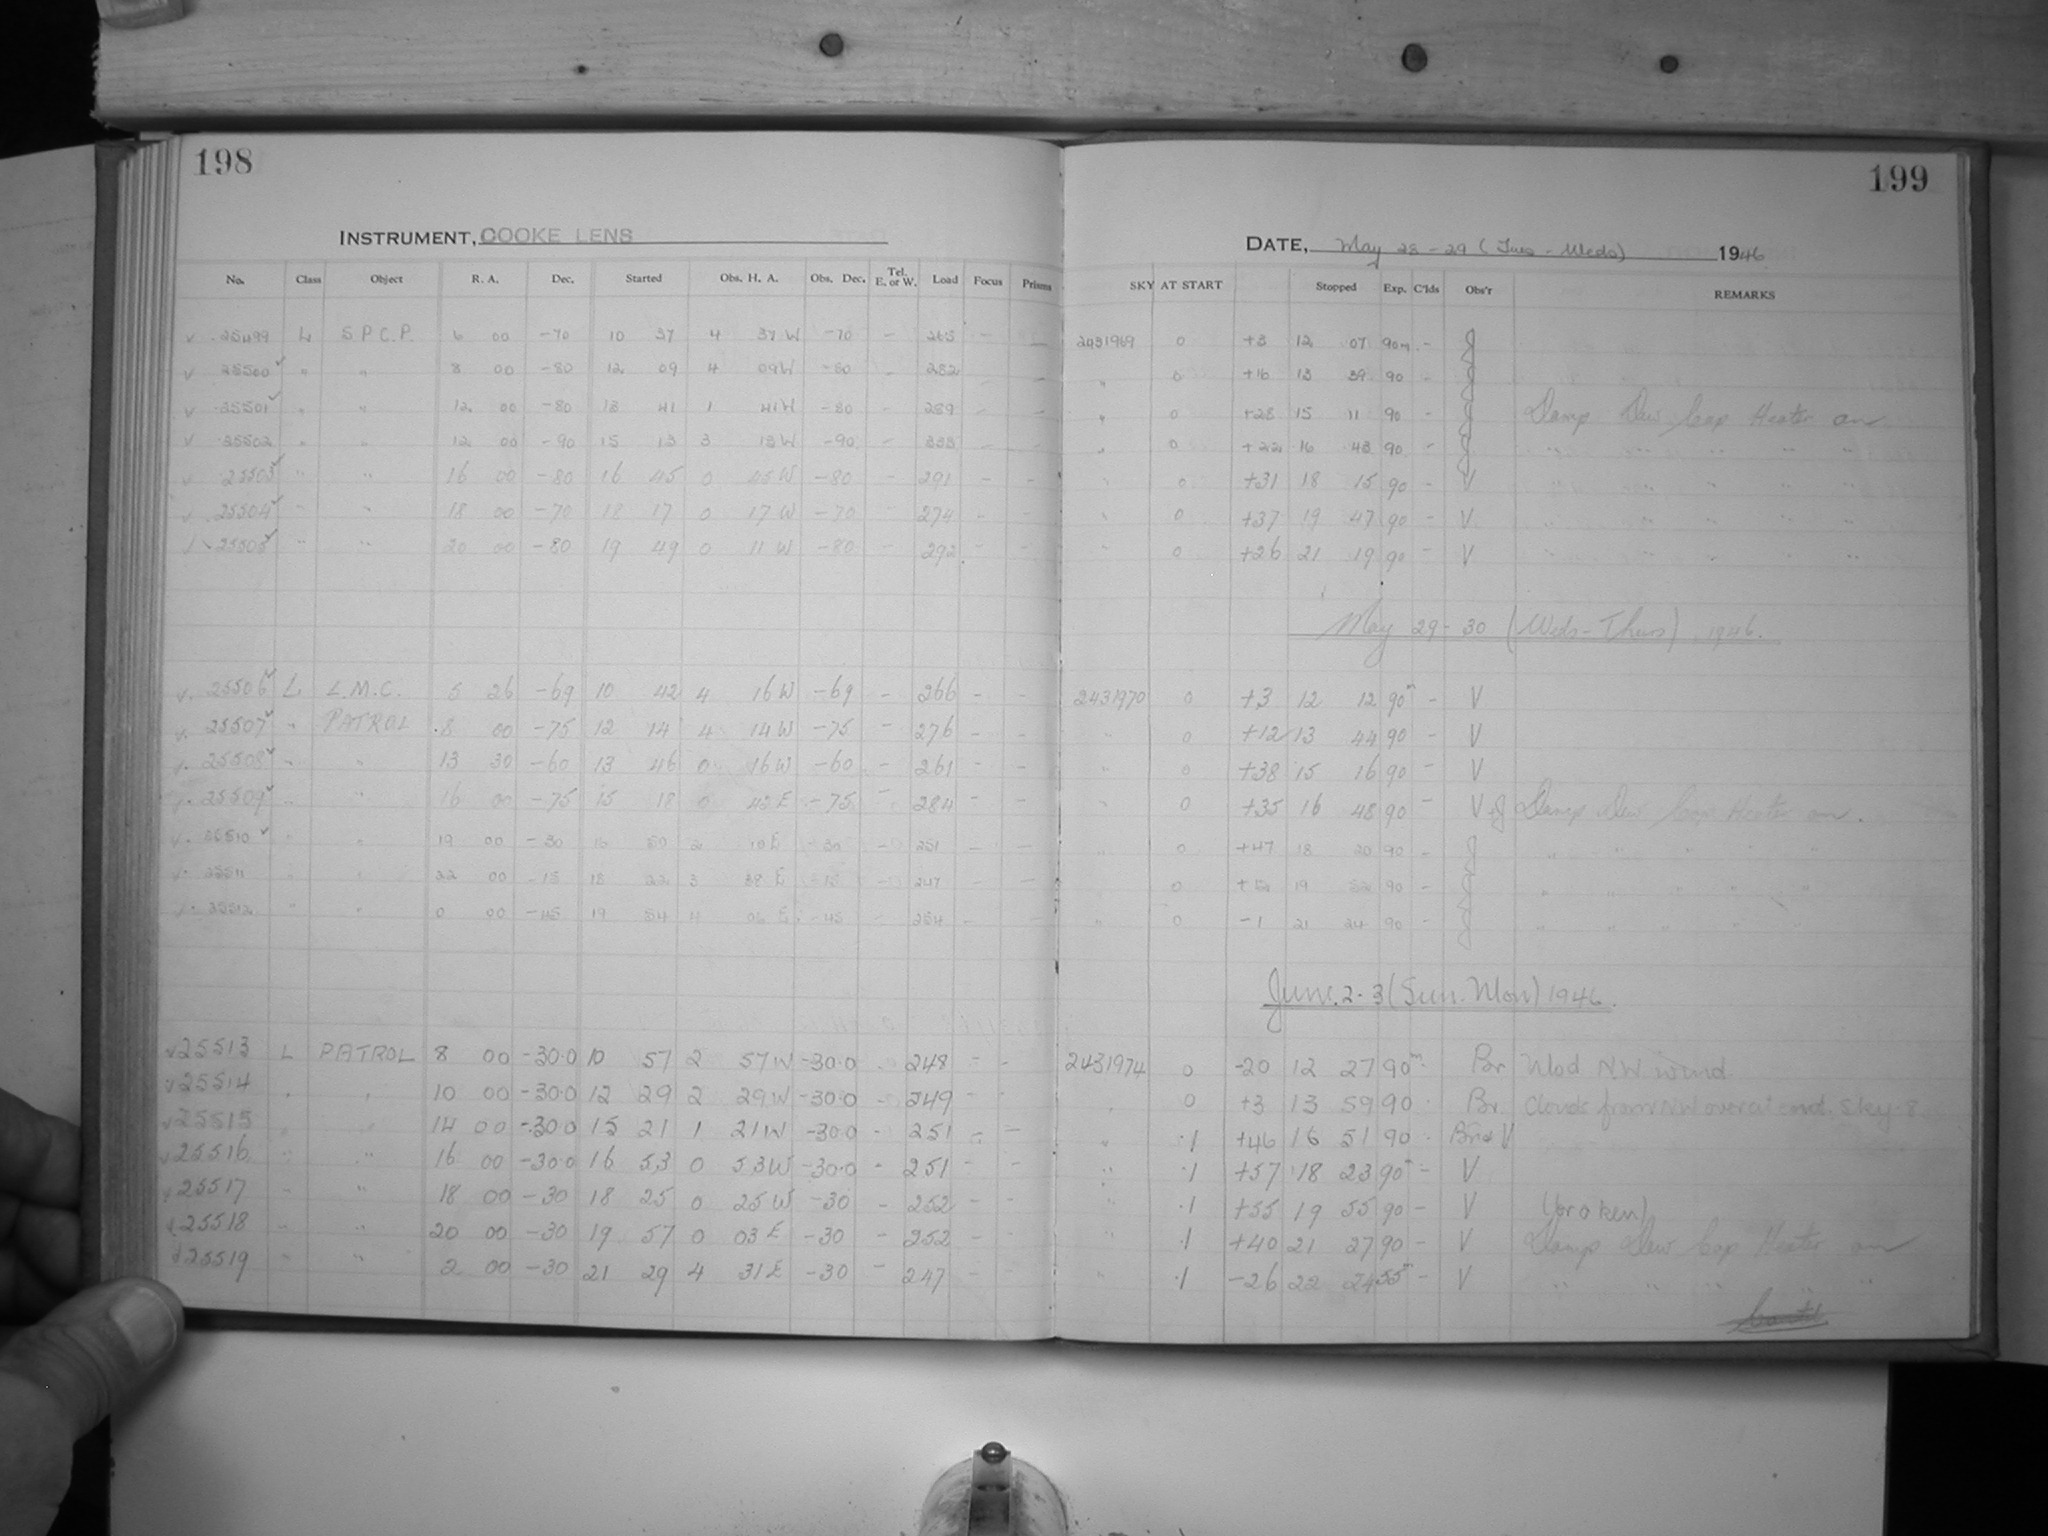 198
INSTRUMENT, COOKE LENS
No. Class Object R. A. Dec. Started Obs. H. A. Obs. Dec. Tel. E. or W. Load Focus Prisms
v 25499 L S.P.C.P. 6 00 -70 10 37 4 37 W -70 - 265 - -
v 25500 " " 8 00 -80 12 09 4 09 W -80 - 282 - -
v 25501 " " 12 00 -80 13 41 1 41 W -80 - 289 - -
v 25502 " " 12 00 -90 15 13 3 13 W -90 - 333 - -
v 25503 " " 16 00 -80 16 45 0 45 W -80 - 291 - -
v 25504 " " 18 00 -70 18 17 0 17 W -70 - 274 - -
25505 " " 20 00 -80 19 49 0 11 W -80 - 292 - -
v. 25506 L L.M.C. 5 26 -69 10 42 4 16 W -69 - 266 - -
v. 25507 " PATROL 8 00 -75 12 14 4 14 W -75 - 276 - -
25508 " " 13 30 -60 13 46 0 16 W -60 - 261 - -
25509 " " 16 00 -75 15 18 0 42 E -75 - 284 - -
v. 25510 " " 19 00 -30 16 50 2 10 E -30 - 251 - -
v. 25511 " " 22 00 -15 18 22 3 38 E -15 - 247 - -
25512 " " 0 00 -45 19 54 4 06 E -45 - 254 - -
v 25513 L PATROL 8 00 -30.0 10 57 2 57 W -30.0 248 - -
v 25514 " " 10 00 -30.0 12 29 2 29 W -30.0 - 249 - -
v 25515 " " 14 00 -30.0 15 21 1 21 W -30.0 - 251 - -
v 25516 " " 16 00 -30.0 16 53 0 53 W -30.0 - 251 - -
v 25517 " " 18 00 -30 18 25 0 25 W -30 - 252 - -
v 25518 " " 20 00 -30 19 57 0 03 E -30 - 252 - -
v 25519 " " 2 00 -30 21 29 4 31 E -30 - 247 - -
199
DATE, May 28-29 (Tues - Weds) 1946
SKY AT START Stopped Exp. C'lds Obs'r REMARKS
2431969 0 +3 12 07 90m - J
" 0 +16 13 39 90 - J
" 0 +28 15 11 90 - J Damp Dew Cap Heater on
" 0 +22 16 43 90 - J " " " " "
" 0 +31 18 15 90 - V " " " " "
" 0 +37 19 47 90 - V " " " " "
" 0 +26 21 19 90 - V " " " " "
May 29-30 (Weds-Thurs) 1946.
2431970 0 +3 12 12 90m - V
" 0 +12 13 44 90 - V
" 0 +38 15 16 90 - V
" 0 +35 16 48 90 - V J Damp Dew Cap Heater on.
" 0 +47 18 20 90 - J " " " " "
" 0 19 52 90 - J " " " " "
" 0 -1 21 24 90 - J " " " " "
June. 2-3 (Sun. Mon) 1946.
2431974 0 -20 12 27 90m Br Mod N.W. wind.
" 0 +3 13 59 90 Br Clouds from NW over at end. Sky .8
" .1 +46 16 51 90 Br & V
" .1 +57 18 23 90 - V
" .1 +55 19 55 90 - V (broken)
" .1 +40 21 27 90 - V Damp Dew Cap Heater on
" .1 -26 22 24 55m - V " " " " "